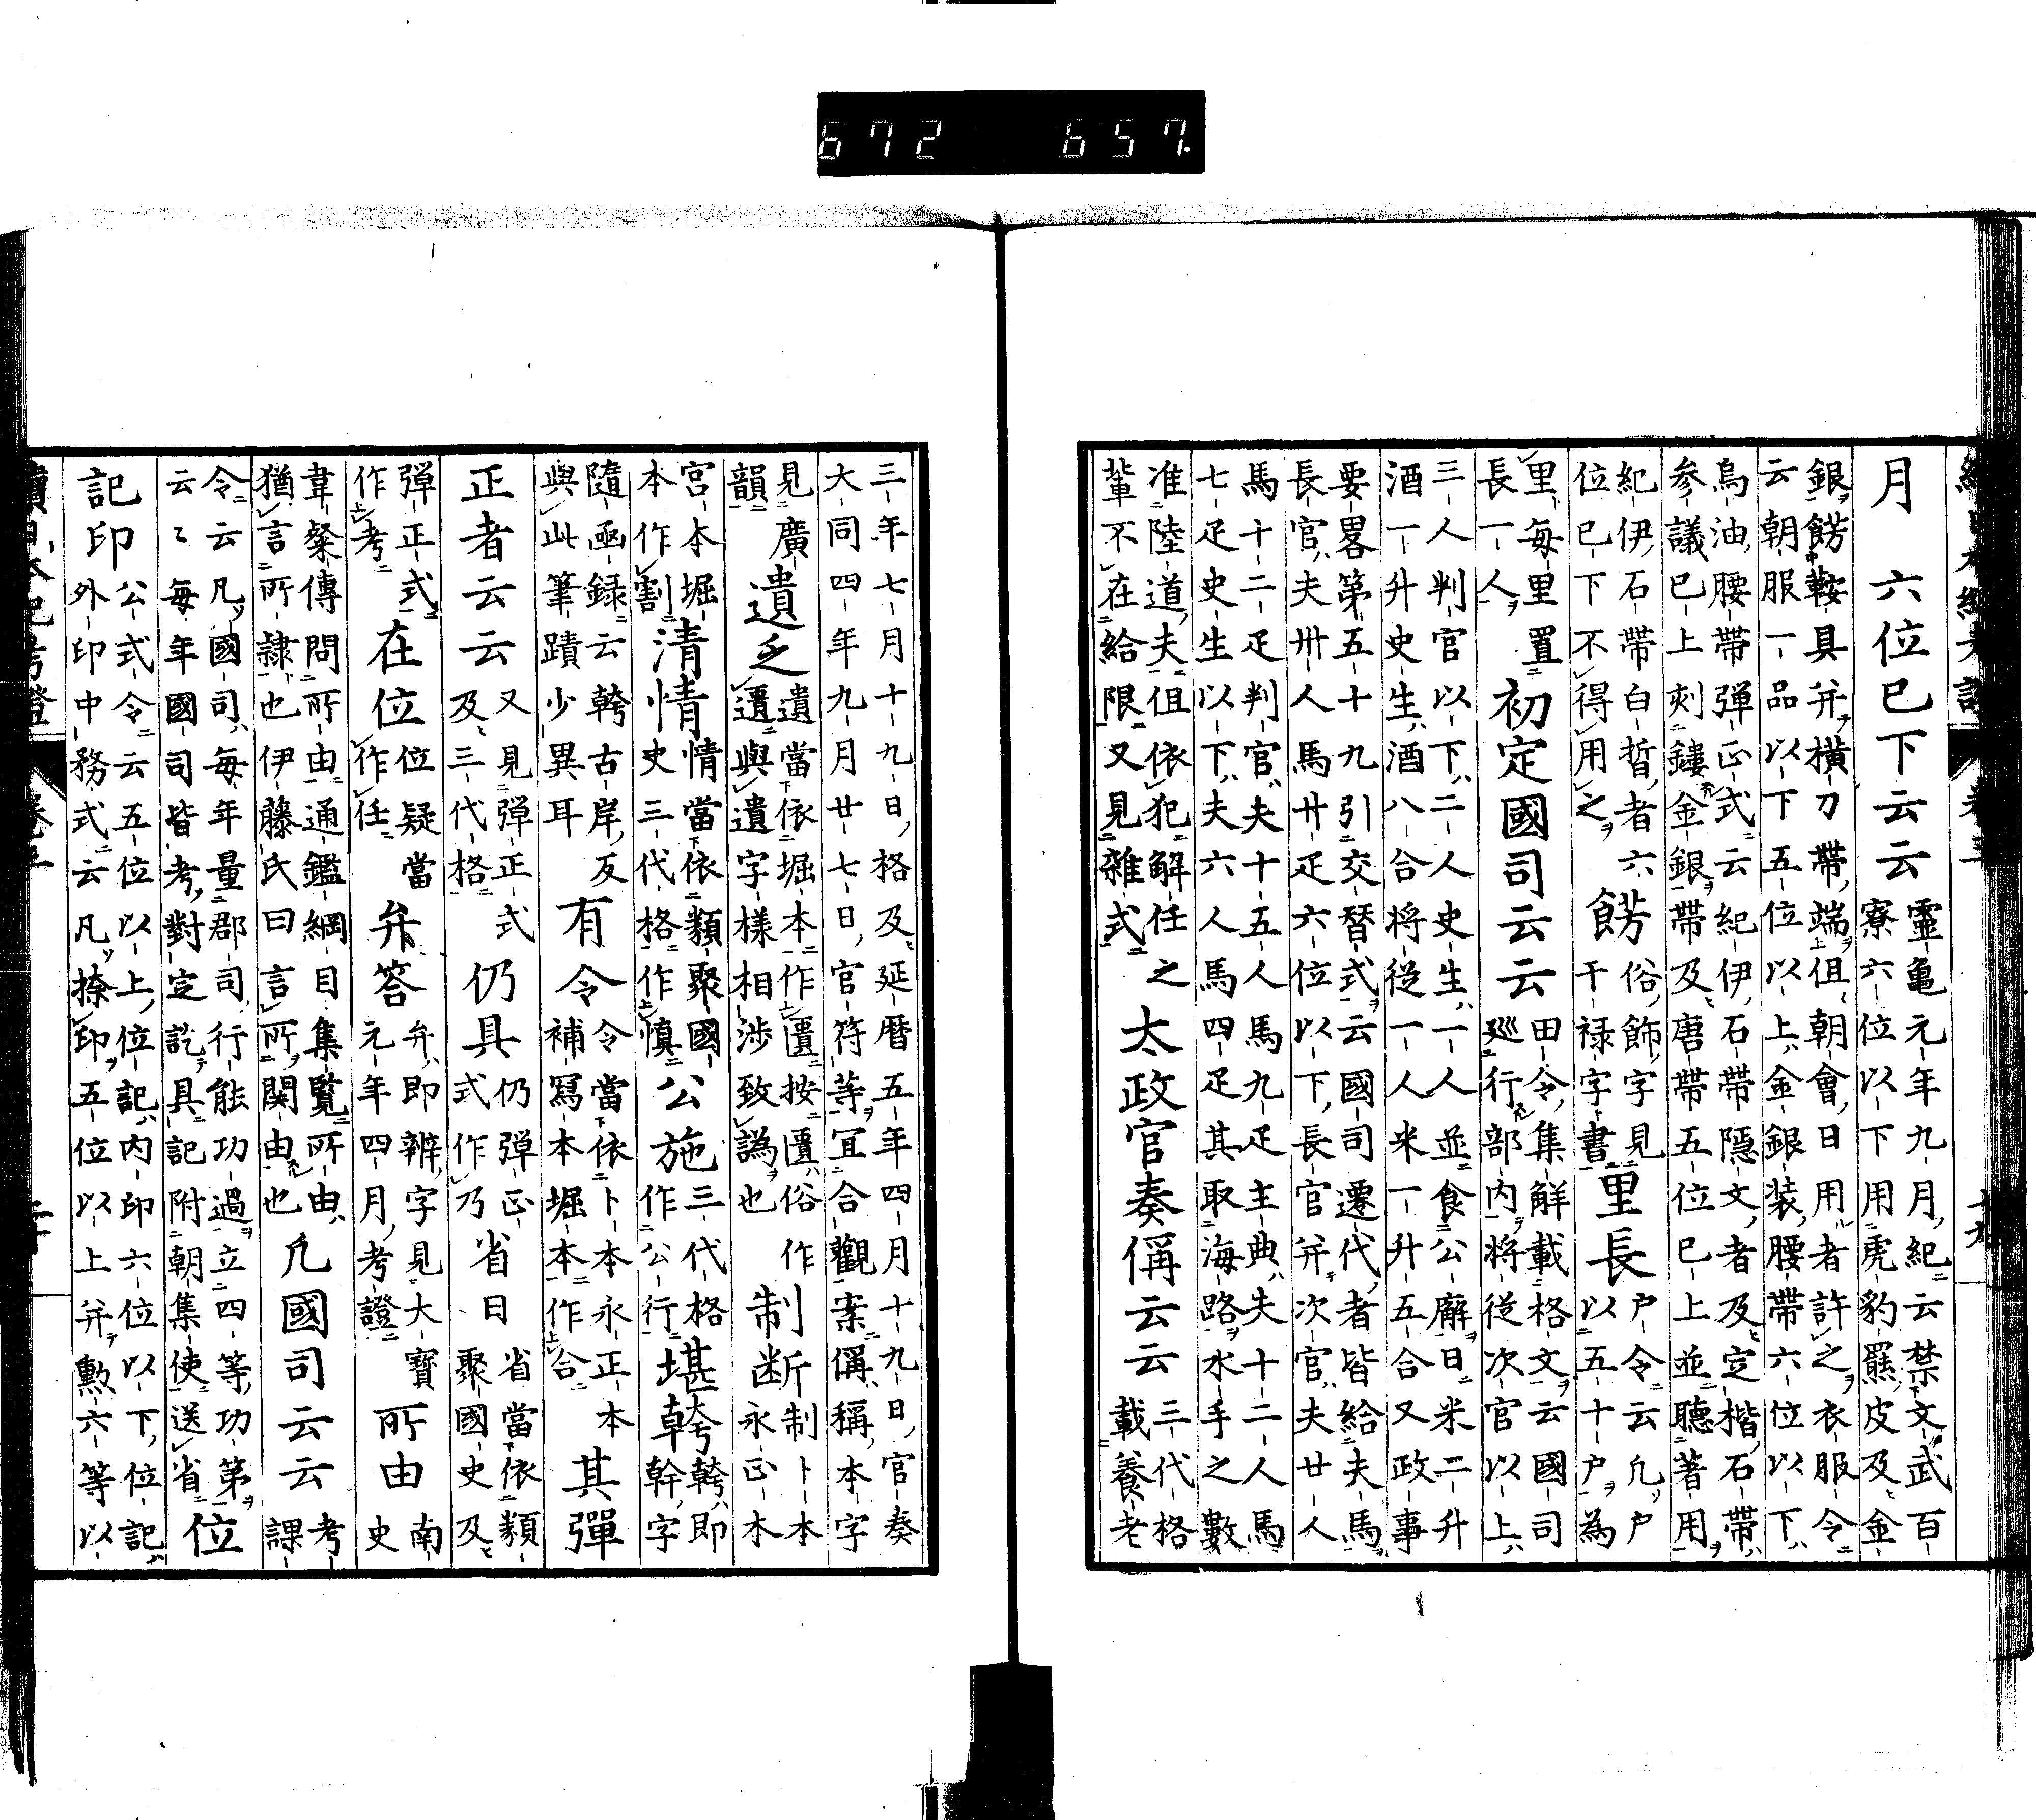 672 657.
月 六位已下云云 靈亀元年九月紀云禁文武百
寮六位以下用虎豹羆皮及金
銀餝鞍具并横刀帶端但朝會日用者許之衣服令
云朝服一品以下五位以上金銀装腰帶六位以下
烏油腰帶弾正式云紀伊石帶隠文者及定楷石帶
参議已上刻鏤金銀帶及唐帶五位已上並聽著用
紀伊石帶白皙者六
位已下不得用之 餝 俗飾字見
干禄字書 里長 戸令云凢戸
以五十戸為
里每里置
長一人 初定國司云云 田令集解載格文云國司
廵行部内将従次官以上
三人判官以下二人史生一人並食公廨日米二升
酒一升史生酒八合将従一人米一升五合又政事
要畧第五十九引交替式云國司遷代者皆給夫馬
長官夫卅人馬廿疋六位以下長官并次官夫廿人
馬十二疋判官夫十五人馬九疋主典夫十二人馬
七疋史生以下夫六人馬四疋其取海路水手之數
准陸道夫但依犯解任之
輩不在給限又見雜式 太政官奏偁云云 三代格
載養老
三年七月十九日格及延暦五年四月十九日官奏
大同四年九月廿七日官符等冝合觀案偁稱本字
見廣
韻 遺乏 遺當依堀本作匱按匱俗作
遺與遺字様相渉致譌也 制断 制卜本
永正本
宮本堀
本作割 清情 情當依類聚國
史三代格作慎 公施 三代格
作公行 堪幹 幹即
幹字
隨函録云
與此筆蹟少異耳 有令 令當依卜本永正本
補寫本堀本作合 其彈
正者云云 又見弾正式
及三代格 仍具 仍弾正
式作乃 省日 省當依類
聚國史及
弾正式
作考 在位 位疑當
作任 弁答 弁即辨字見大寶
元年四月考證 所由 南
史
韋粲傳問所由通鑑綱目集覧所由
猶言所隷也伊藤氏曰言所関由也 凢國司云云 考
課
令云凡國司每年量郡司行能功過立四等功第
云々每年國司皆考對定訖具記附朝集使送省 位
記印 公式令云五位以上位記内印六位以下位記
外印中務式云凡捺印五位以上并勲六等以